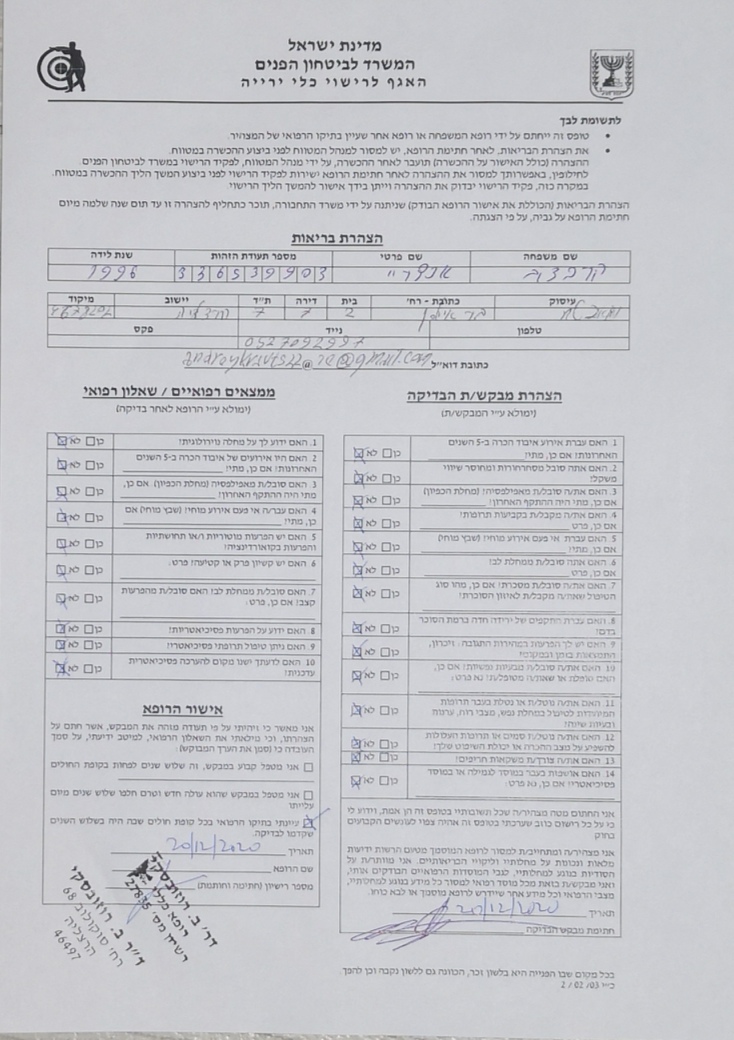 מדינת ישראל
המשרד לביטחון הפנים
האגף לרישוי כלי ירייה
לתשומת לבך
טופס זה ייחתם על ידי רופא המשפחה או רופא אחר שעיין בתיקו הרפואי של המצהיר.
את הצהרת הבריאות, לאחר חתימת הרופא, יש למסור למנהל המטווח לפני ביצוע ההכשרה במטווח.
ההצהרה (כולל האישור על ההכשרה) תועבר לאחר ההכשרה, על ידי מנהל המטווח, לפקיד הרישוי במשרד לביטחון הפנים.
לחילופין, באפשרותך למסור את ההצהרה לאחר חתימת הרופא ישירות לפקיד הרישוי לפני ביצוע המשך הליך ההכשרה במטווח.
במקרה כזה, פקיד הרישוי יבדוק את ההצהרה וייתן בידך אישור להמשך הליך הרישוי.
הצהרת הבריאות (הכוללת את אישור הרופא הבודק) שניתנה על ידי משרד התחבורה, תוכר כתחליף להצהרה זו עד תום שנה שלמה מיום
חתימת הרופא על גביה, על פי הצגתה.
הצהרת בריאות
שם משפחה שם פרטי מספר תעודת הזהות שנת לידה
336539903 1996
עיסוק כתובת - רח' בית דירה ת"ד יישוב מיקוד
2 7 7
טלפון נייד פקס
0527092997
כתובת דוא"ל
הצהרת מבקש/ת הבדיקה
(ימולא ע"י המבקש/ת)
1. האם עברת אירוע איבוד הכרה ב-5 השנים
האחרונות? אם כן, מתי? כן לא
2. האם אתה סובל מסחרחורות ומחוסר שיווי
משקל? כן לא
3. האם את/ה סובל/ת מאפילפסיה? (מחלת הכפיון)
אם כן, מתי היה ההתקף האחרון? כן לא
4. האם את/ה מקבל/ת בקביעות תרופות?
אם כן, פרט כן לא
5. האם עברת אי פעם אירוע מוחי? (שבץ מוחי)
אם כן, מתי? כן לא
6. האם אתה סובל/ת ממחלת לב?
אם כן, פרט כן לא
7. האם את/ה סובל/ת מסכרת? אם כן, מהו סוג
הטיפול שאת/ה מקבל/ת לאיזון הסוכרת? כן לא
8. האם עברת התקפים של ירידה חדה ברמת הסוכר
בדם? כן לא
9. האם יש לך הפרעות במהירות התגובה, זיכרון,
התמצאות בזמן ובמקום? כן לא
10. האם את/ה סובל/ת מבעיות נפשיות? אם כן,
האם טופלת או שאת/ה מטופל/ת? נא פרט: כן לא
11. האם את/ה נוטל/ת או נטלת בעבר תרופות
המיועדות לטיפול במחלת נפש, מצבי רוח, ערנות
ובעיות שינה? כן לא
12. האם את/ה נוטל/ת סמים או תרופות העלולות
להשפיע על מצב ההכרה או יכולת השיפוט שלך? כן לא
13. האם את/ה צורך/ת משקאות חריפים? כן לא
14. האם אושפזת בעבר במוסד לגמילה או במוסד
פסיכיאטרי? אם כן, נא פרט: כן לא
אני החתום מטה מצהיר/ה שכל תשובותיי בטופס זה הן אמת, וידוע לי
כי על כל רישום כוזב שערכתי בטופס זה אהיה צפוי לעונשים הקבועים
בחוק
אני מצהיר/ה ומתחייב/ת למסור לרופא המוסמך מטעם הרשות ידיעות
מלאות ונכונות על מחלותיי וליקויי הבריאותיים. אני מוותר/ת על
הסודיות בנוגע למחלותיי, לגבי המוסדות הרפואיים הבודקים אותי,
ואני מבקש/ת בזאת מכל מוסד רפואי למסור כל מידע בנוגע למחלותיי,
מצבי הרפואי וכל מידע אחר שיידרש לרופא מוסמך או לבא כוחו.
תאריך 20/12/2020
חתימת מבקש הבדיקה
ממצאים רפואיים / שאלון רפואי
(ימולא ע"י הרופא לאחר בדיקה)
1. האם ידוע לך על מחלה נוירולוגית? כן לא
2. האם היו אירועים של איבוד הכרה ב-5 השנים
האחרונות? אם כן, מתי? כן לא
3. האם סובל/ת מאפילפסיה (מחלת הכפיון) אם כן,
מתי היה ההתקף האחרון? כן לא
4. האם עבר/ה אי פעם אירוע מוחי? (שבץ מוחי) אם
כן, מתי? כן לא
5. האם יש הפרעות מוטוריות ו/או תחושתיות
והפרעות בקואורדינציה? כן לא
6. האם יש קשיון פרק או קטיעה? פרט: כן לא
7. האם סובל/ת ממחלת לב? האם סובל/ת מהפרעות
קצב? אם כן, פרט: כן לא
8. האם ידוע על הפרעות פסיכיאטריות? כן לא
9. האם ניתן טיפול תרופתי פסיכיאטרי? כן לא
10. האם לדעתך ישנו מקום להערכה פסיכיאטרית
עדכנית? כן לא
אישור הרופא
אני מאשר כי זיהיתי על פי תעודה מזהה את המבקש, אשר חתם על
הצהרתו, וכי מילאתי את השאלון הרפואי, למיטב ידיעתי, על סמך
העובדה כי (סמן את הערך המבוקש):
אני מטפל קבוע במבקש, זה שלוש שנים לפחות בקופת החולים
אני מטפל במבקש שהוא עולה חדש וטרם חלפו שלוש שנים מיום
עלייתו
עיינתי בתיקו הרפואי בכל קופת חולים שבה היה בשלוש השנים
שקדמו לבדיקה.
תאריך 20/12/2020
שם הרופא
מספר רישיון (חתימה וחותמת)
דר' ב. רוזובסקי
רופא כללי
רשיון מס' 27835
ד"ר ב. רוזובסקי
רח' סוקולוב 68
הרצליה
46497
בכל מקום שבו הפנייה היא בלשון זכר, הכוונה גם ללשון נקבה וכן להפך